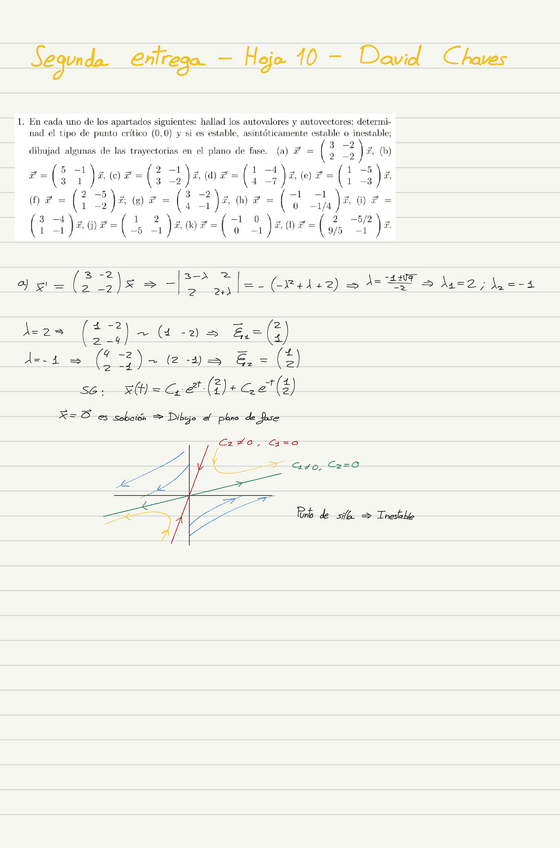 Segunda entrega – Hoja 10 – David Chaves
1. En cada uno de los apartados siguientes: hallad los autovalores y autovectores; determi-
nad el tipo de punto crítico (0, 0) y si es estable, asintóticamente estable o inestable;
dibujad algunas de las trayectorias en el plano de fase. (a) x⃗' = (3 −2; 2 −2) x⃗, (b)
x⃗' = (5 −1; 3 1) x⃗, (c) x⃗' = (2 −1; 3 −2) x⃗, (d) x⃗' = (1 −4; 4 −7) x⃗, (e) x⃗' = (1 −5; 1 −3) x⃗,
(f) x⃗' = (2 −5; 1 −2) x⃗; (g) x⃗' = (3 −2; 4 −1) x⃗, (h) x⃗' = (−1 −1; 0 −1/4) x⃗, (i) x⃗' =
(3 −4; 1 −1) x⃗, (j) x⃗' = (1 2; −5 −1) x⃗, (k) x⃗' = (−1 0; 0 −1) x⃗, (l) x⃗' = (2 −5/2; 9/5 −1) x⃗.
a) x⃗' = (3 -2; 2 -2) x⃗ ⇒ -|3-λ 2; 2 2+λ| = -(-λ²+λ+2) ⇒ λ = (-1±√9)/-2 ⇒ λ1=2; λ2=-1
λ=2 ⇒ (1 -2; 2 -4) ~ (1 -2) ⇒ ξ⃗1 = (2; 1)
λ=-1 ⇒ (4 -2; 2 -1) ~ (2 -1) ⇒ ξ⃗2 = (1; 2)
SG: x⃗(t) = C1·e^2t·(2; 1) + C2 e^-t (1; 2)
x⃗ = 0⃗ es solución ⇒ Dibujo el plano de fase
C2≠0, C1=0
C1≠0, C2=0
Punto de silla ⇒ Inestable